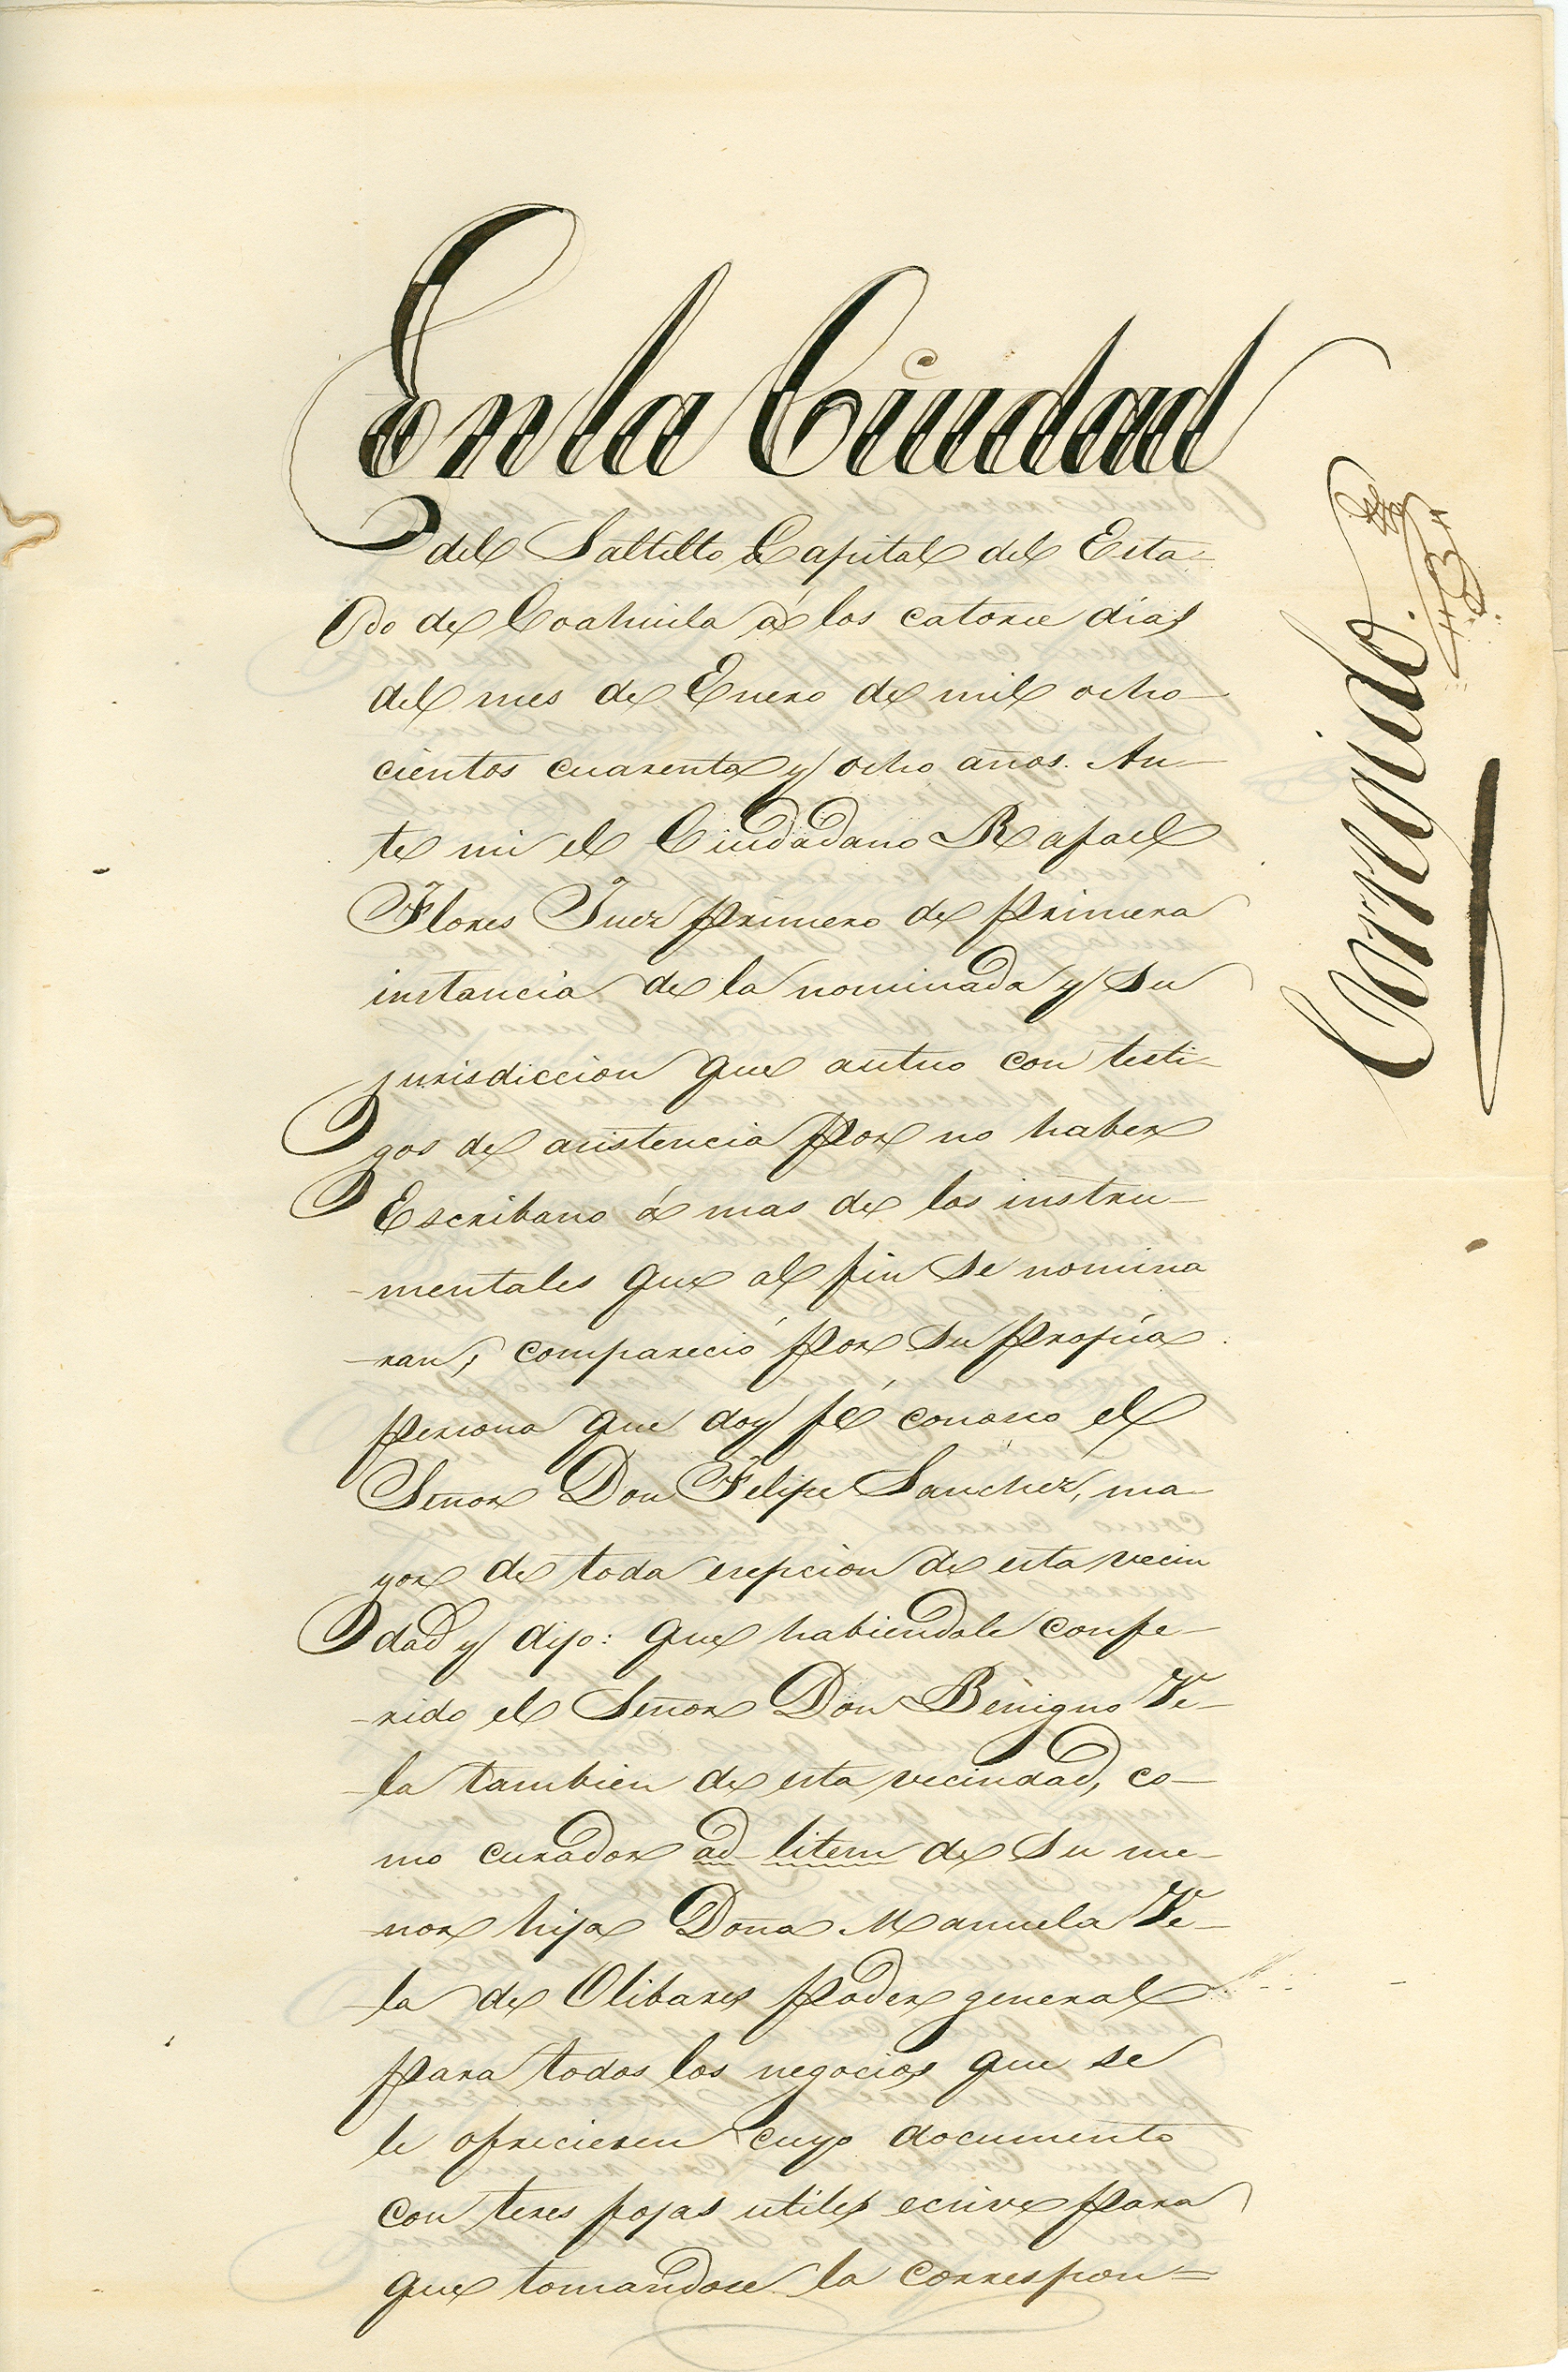 En la Ciudad
del Saltillo Capital del Esta-
do de Coahuila á los catorce dias
del mes de Enero de mil ocho-
cientos cuarenta y ocho años. An-
te mi el Ciudadano Rafael
Flores Juez primero de primera
instancia de la nominada y su
jurisdiccion que autuo con testi-
gos de asistencia por no haber
Escribano á mas de los instru-
-mentales que al fin se nomina
-ran, compareció por su propia
persona que doy fé conosco el
Señor Don Felipe Sanchez, ma-
yor de toda esepcion de esta vecin
dad y dijo: que habiendole confe-
-rido el Señor Don Benigno Ve-
-la tambien de esta vecindad, co-
mo curador ad litem de su me-
-nor hija Doña Manuela Ve-
-la de Olibares poder general
para todos los negocios que se
le ofrecieren cuyo documento
con teres fojas utiles ecsive para
que tomandose la correspon=
Corregido.